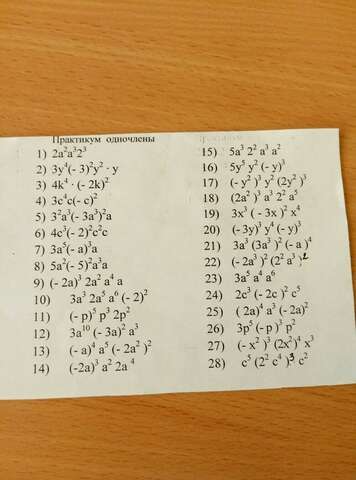 Практикум одночлены
1) 2a²a³2³
2) 3y⁴(- 3)²y² · y
3) 4k⁴ · (- 2k)²
4) 3c⁴c(- c)²
5) 3²a³(- 3a³)²a
6) 4c³(- 2)²c²c
7) 3a⁵(- a)³a
8) 5a²(- 5)²a³a
9) (- 2a)³ 2a² a⁴ a
10) 3a³ 2a⁵ a⁶ (- 2)²
11) (- p)⁵ p³ 2p²
12) 3a¹⁰ (- 3a)² a³
13) (- a)⁴ a⁵ (- 2a² )²
14) (-2a)³ a² 2a ⁴
15) 5a³ 2² a³ a²
16) 5y⁵ y² (- y)³
17) (- y² )³ y² (2y² )³
18) (2a² )³ a³ 2² a⁵
19) 3x³ (- 3x )² x⁴
20) (- 3y)³ y⁴ (- y)³
21) 3a³ (3a³ )² (- a )⁴
22) (- 2a³ )² (2² a³ )²
23) 3a⁵ a⁴ a⁶
24) 2c³ (- 2c )² c⁵
25) ( 2a⁴) a³ (- 2a)²
26) 3p⁵ (- p )³ p²
27) (- x² )³ (2x² )⁴ x³
28) c⁵ (2² c⁴ )³ c²